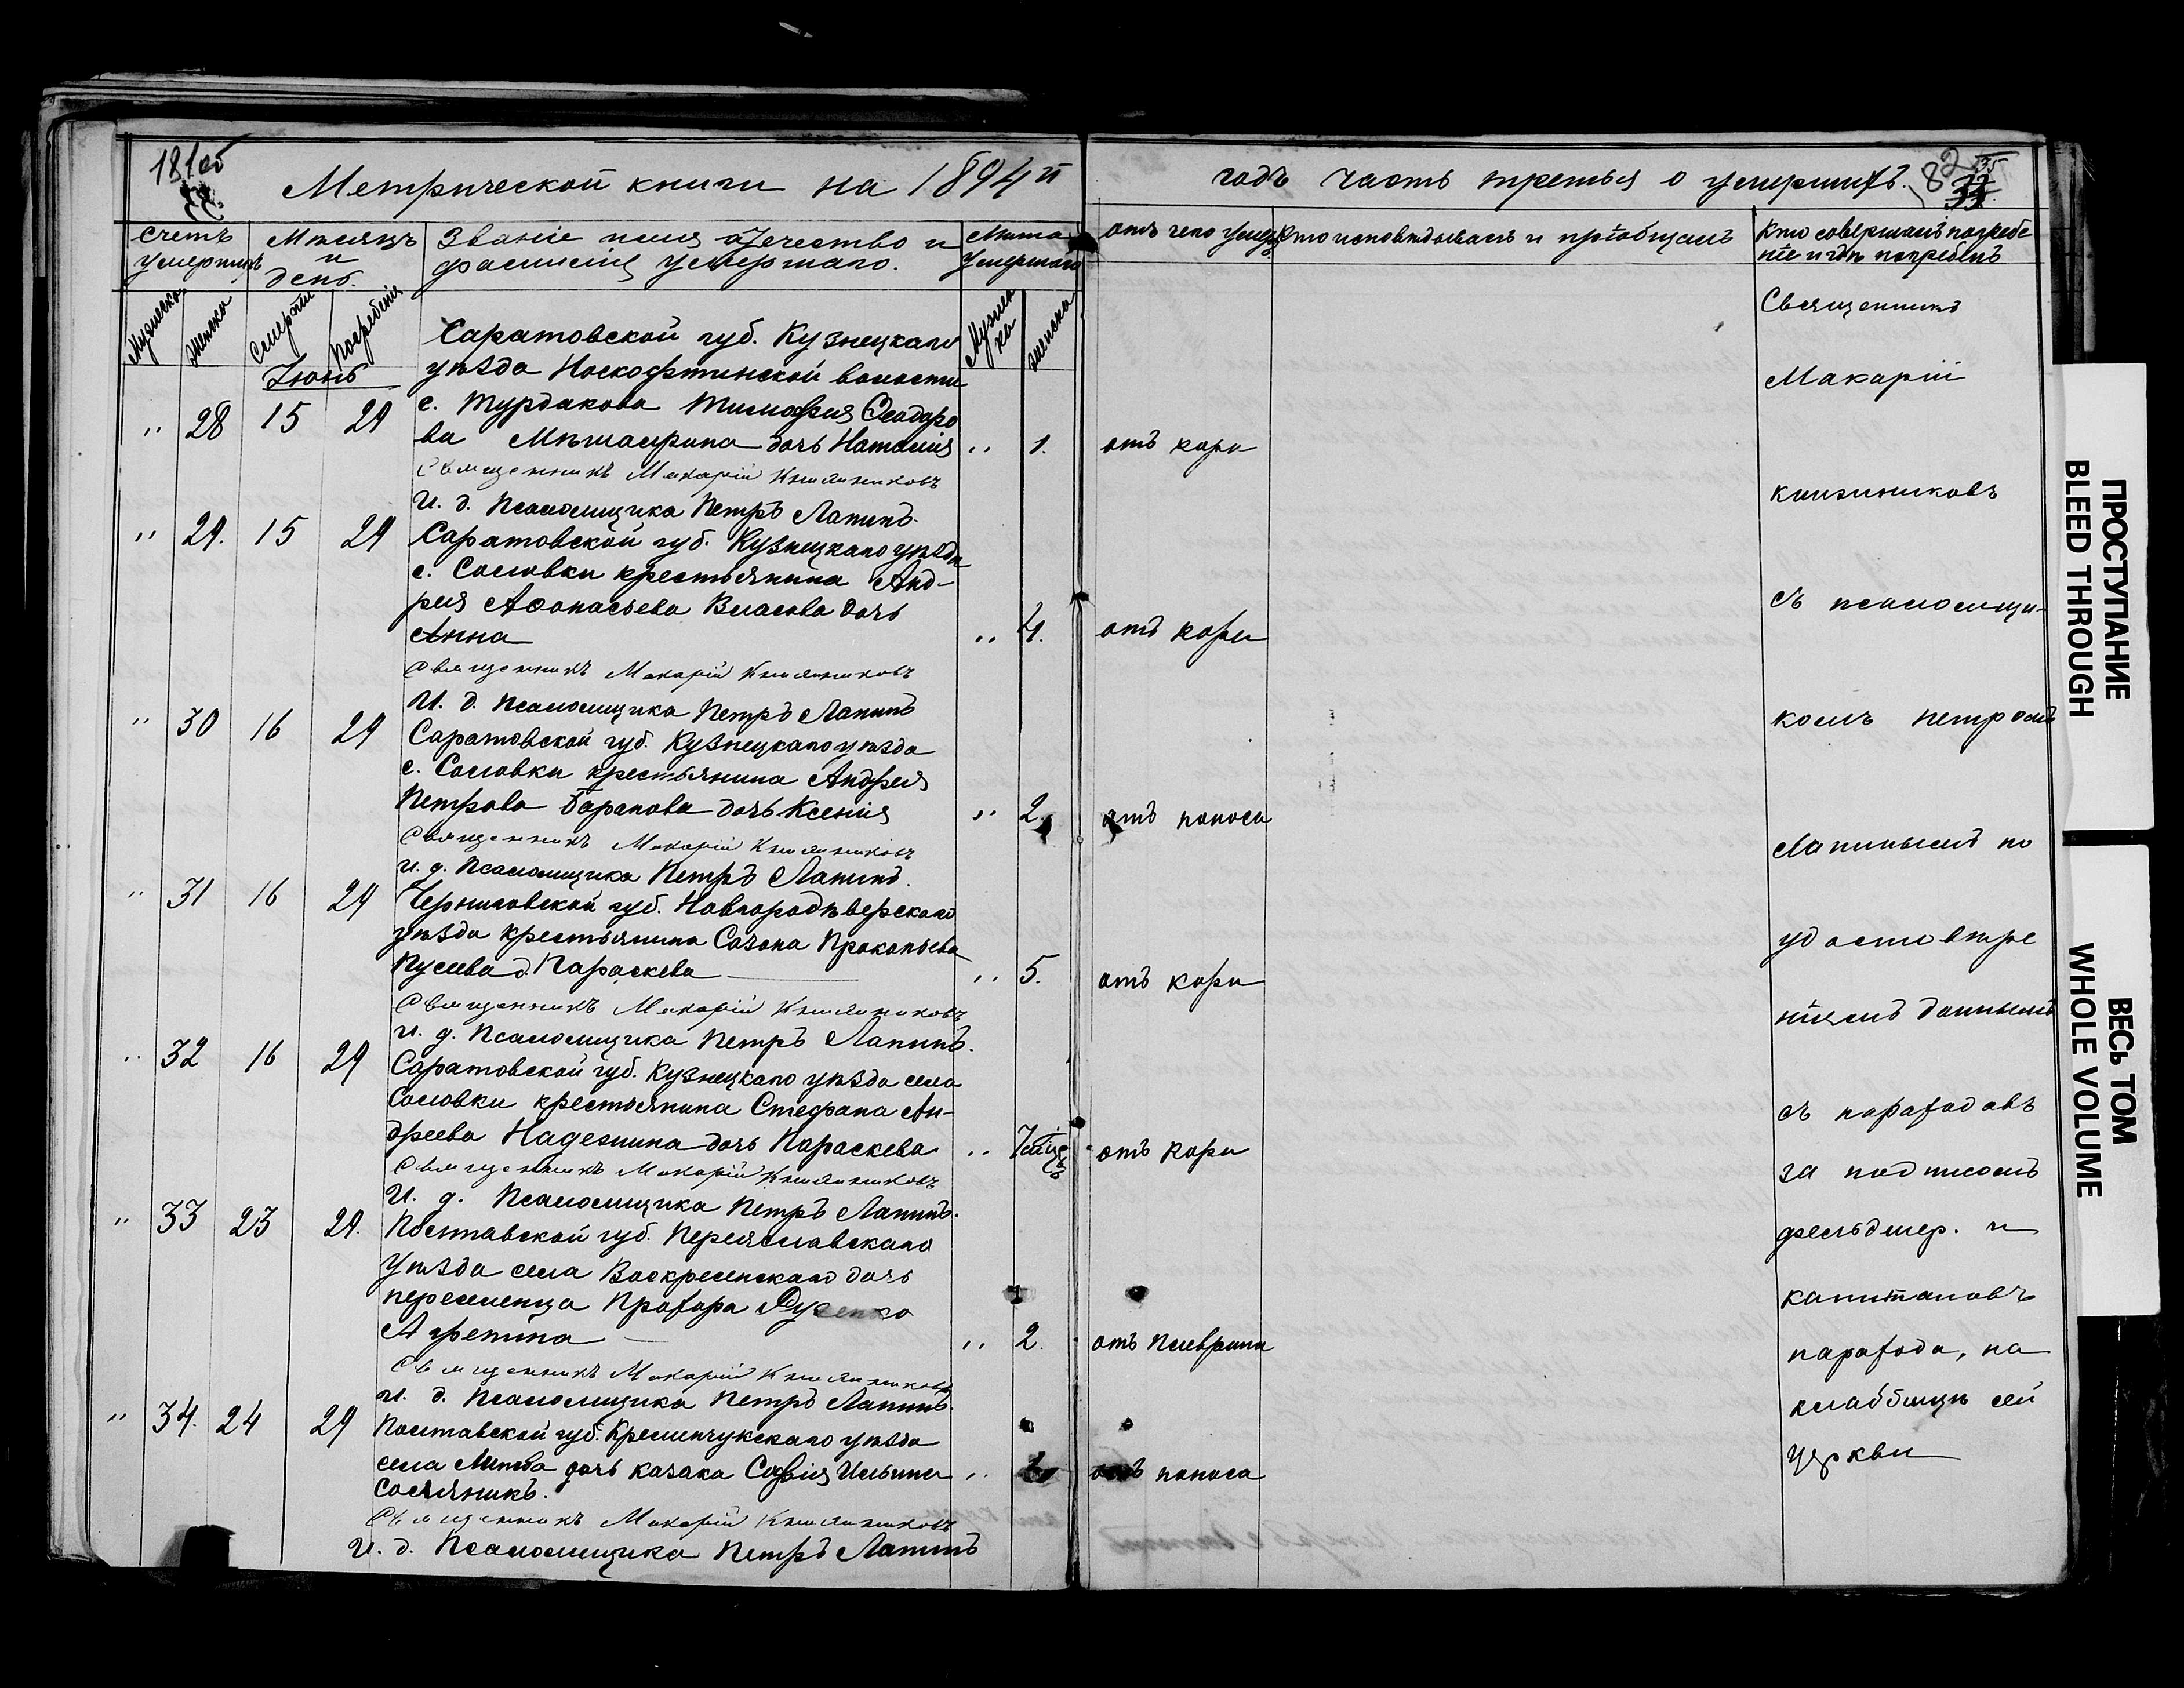 181об
82
Метрической книги на 1894й
годъ часть третья о умершихъ.
счетъ умершихъ
Мѣсяцъ и день.
Званіе имя отчество и фамилія умершаго.
Лѣта умершаго
отъ чего умеръ
Кто исповѣдывалъ и пріобщалъ
Кто совершалъ погребеніе и гдѣ погребенъ
Мужеска
женска
смерти
погребенія
Мужеска
женска
Іюнь
Саратовской губ. Кузнецкаго
уѣзда волости
" 28 15 29 с. Турдакова Тимофея Ѳеодоро
ва дочь Наталия " 1. отъ кори
Священникъ Макарій
И. д. Псаломщика Петръ Лапинъ.
" 29. 15 29 Саратовской губ. Кузнецкаго уѣзда
с. Сосновки крестьянина Анд-
рея Аѳонасьева Власова дочь
Анна " 4. отъ кори
Священникъ Макарій
И. д. Псаломщика Петръ Лапинъ
" 30 16 29 Саратовской губ. Кузнецкаго уѣзда
с. Сосновки крестьянина Андрея
Петрова Баранова дочь Ксенія " 2. отъ поноса
Священникъ Макарій
И. д. Псаломщика Петръ Лапинъ.
" 31 16 29 Черниговской губ. Новгородѣверскаго
уѣзда крестьянина Сазона Прокопьева
д. Параскева " 5. отъ кори
Священникъ Макарій
И. д. Псаломщика Петръ Лапинъ.
" 32 16 29 Саратовской губ. Кузнецкаго уѣзда села
Сосновки крестьянина Стефана Ан-
дреева дочь Параскева " отъ кори
Священникъ Макарій
И. д. Псаломщика Петръ Лапинъ.
" 33 23 29. Полтавской губ. Переяславскаго
Уѣзда села Воскресенскаго дочь
переселенца Прохора
Агрепина " 2. отъ
Священникъ Макарій
И. д. Псаломщика Петръ Лапинъ.
" 34. 24 29 Полтавской губ. Кременчукскаго уѣзда
села дочь казака Софія Ильина " отъ поноса
Священникъ Макарій
И. д. Псаломщика Петръ Лапинъ
Священникъ
Макарій
съ псаломщи-
комъ Петромъ
Лапинымъ по
удостовѣре
ніямъ даннымъ
съ пароходовъ
за подписомъ
фельдшер. и
капитановъ
парохода, на
кладбищѣ сей
церкви
ПРОСТУПАНИЕ
BLEED THROUGH
ВЕСЬ ТОМ
WHOLE VOLUME